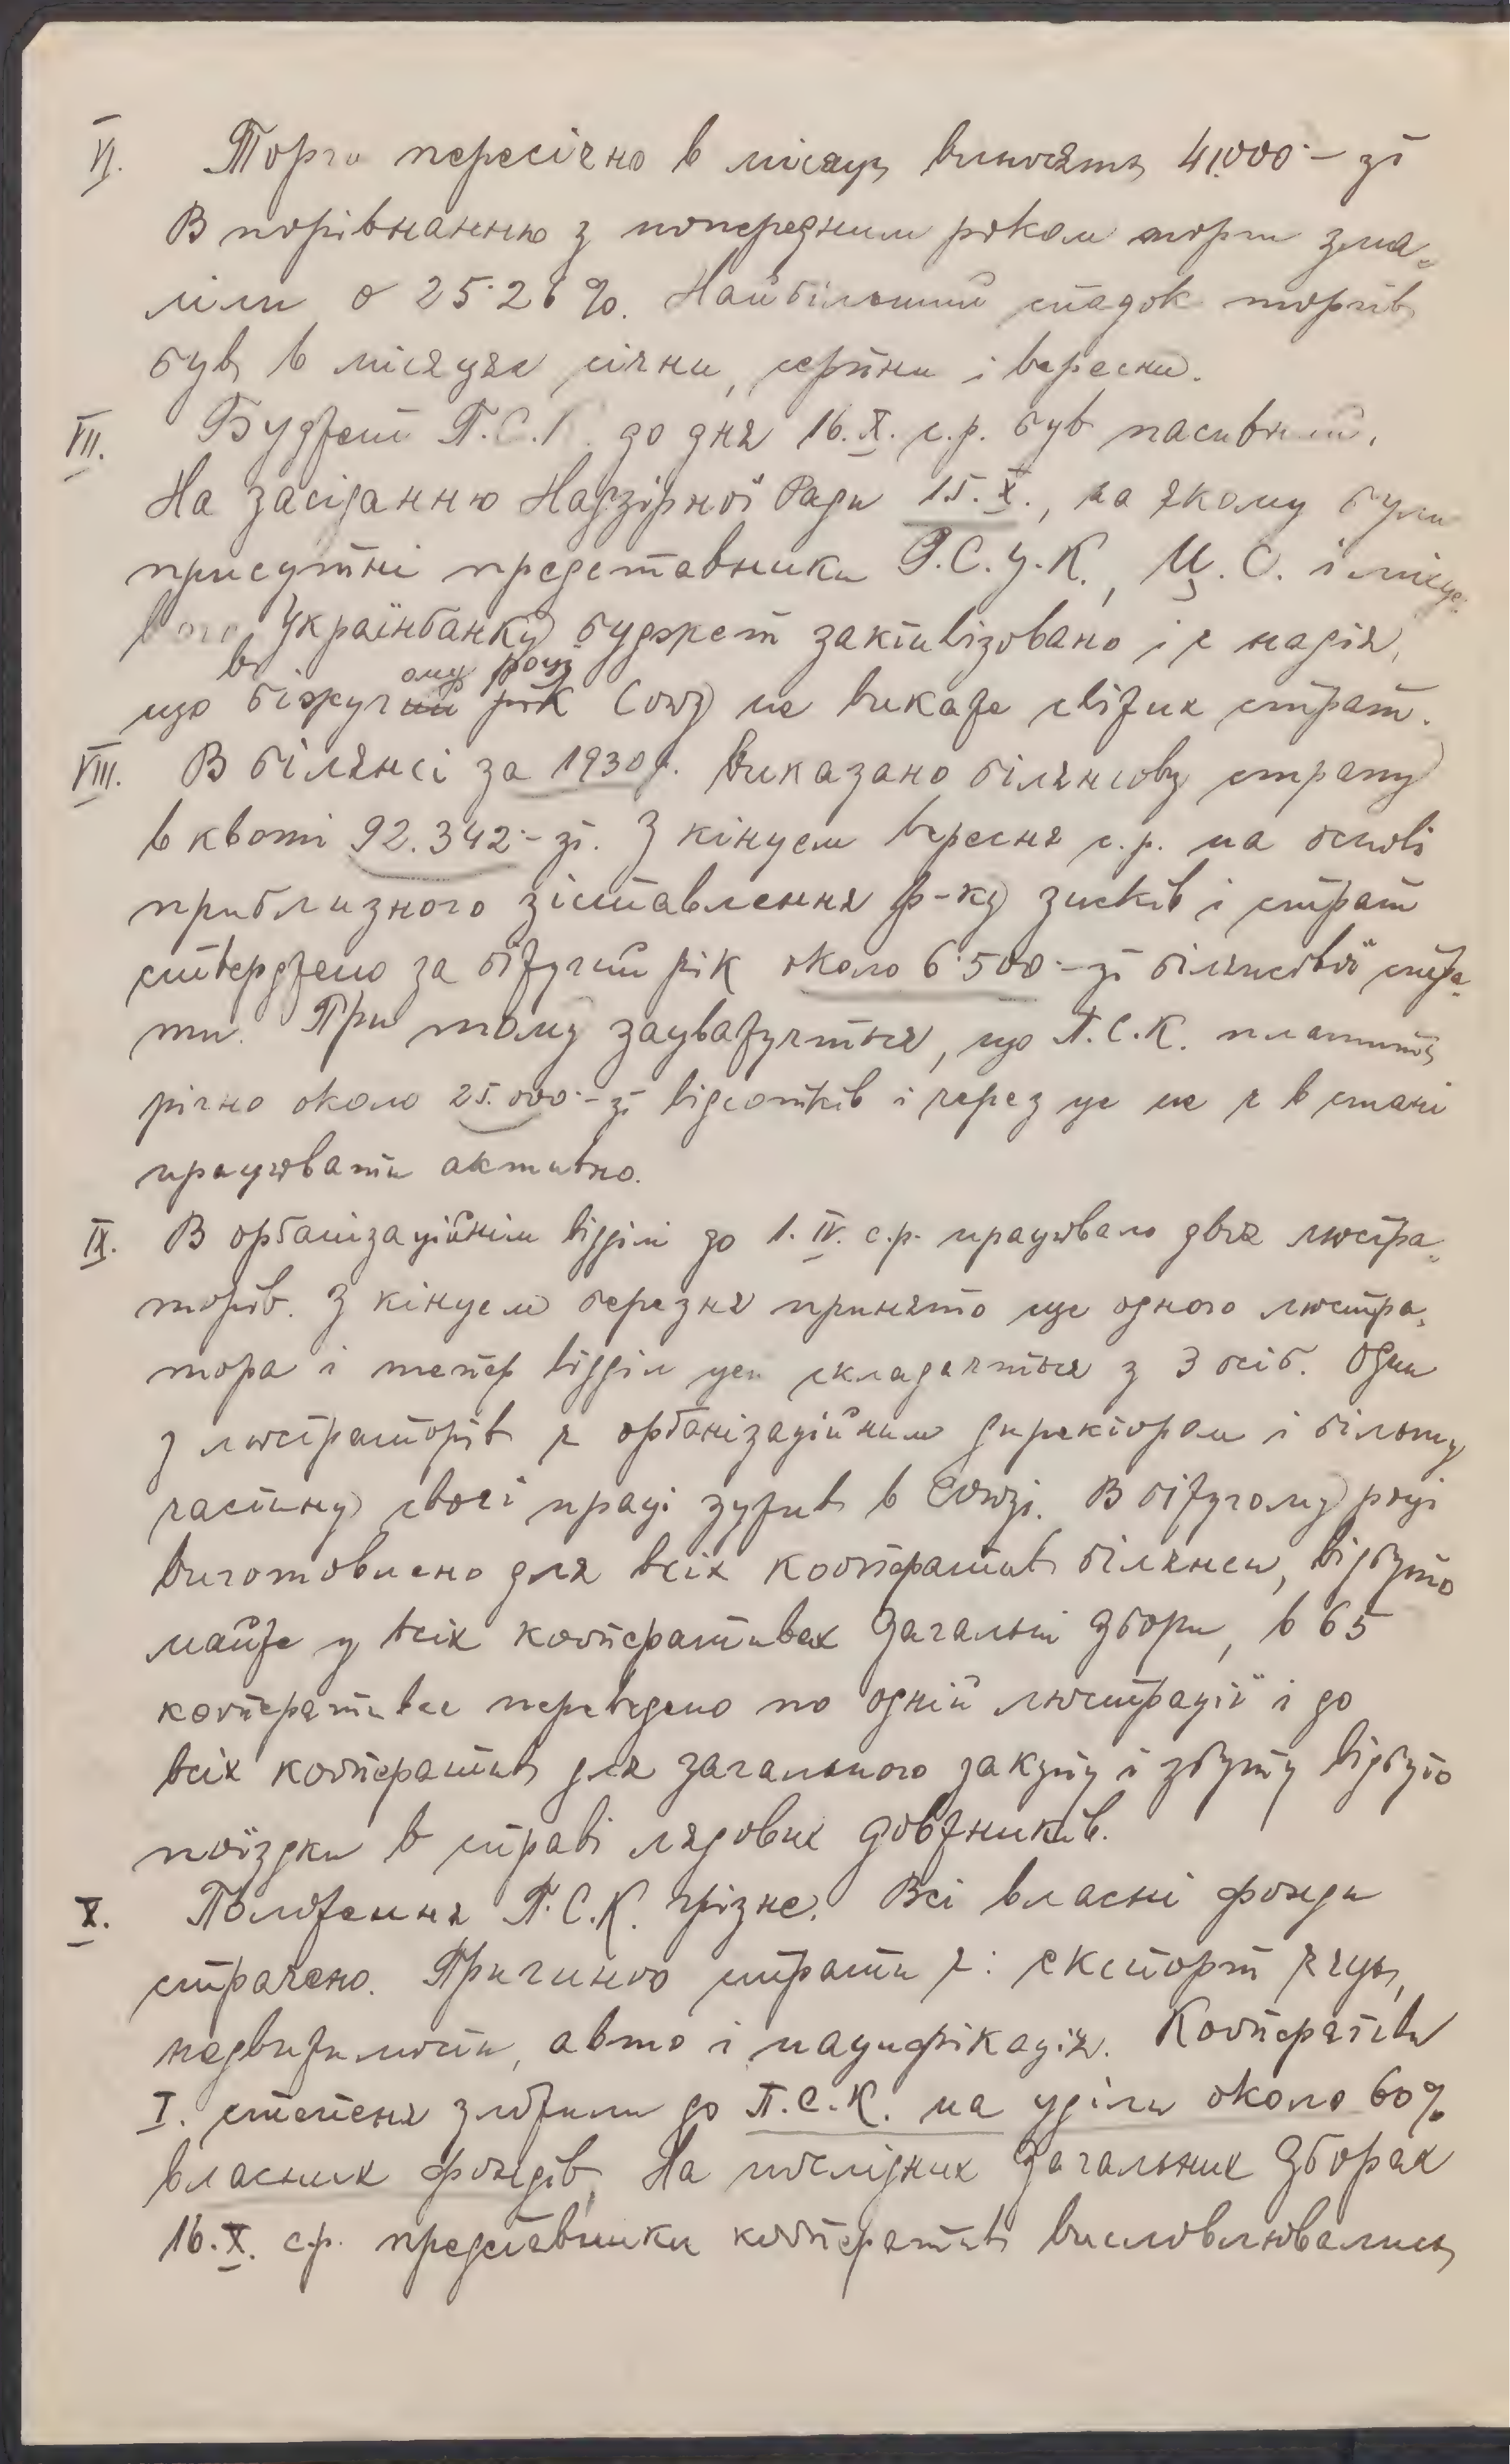 VI. Торги пересічно в місяць виносять 41.000·– зл
В порівнанню з попереднім роком торги зма-
ліли о 25·26 %. Найбільший спадок торгів
був в місяцях січни, серпни і вересни.
VII. Буджет П.С.К. до дня 16.X. с.р. був пасивний.
На засіданню Надзірної Ради 15.X., на якому були
присутні представники Р.С.У.К., Ц.С. і місце-
вого Українбанку буджет зактивізовано і є надія,
що в біжучому році Союз не викаже свіжих страт.
VIII. В білянсі за 1930 р. виказано білянсову страту
в квоті 92.342·– зл. З кінцем вересня с.р. на основі
приблизного зіставлення р-ку зисків і страт
стверджено за біжучий рік около 6·500·– зл білянсової стра-
ти. При тому зауважується, що П.С.К. платить
річно около 25.000·– зл відсотків і через це не є в стані
працювати активно.
IX. В орґанізаційнім відділі до 1.IV. с.р. працювало двох люстра-
торів. З кінцем березня принято ще одного люстра-
тора і тепер відділ цей складається з 3 осіб. Один
з люстраторів є орґанізаційним директором і більшу
частину своєї праці зужив в Союзі. В біжучому році
виготовлено для всіх кооператив білянси, відбуто
майже у всіх кооперативах Загальні Збори, в 65
кооперативах переведено по одній люстрації і до
всіх кооператив для загального закупу і збуту відбуто
поїздки в справі лядових довжників.
X. Положення П.С.К. грізне. Всі власні фонди
страчено. Причиною страти є: експорт яєць,
недвижимости, авто і пацифікація. Кооперативи
I. степеня зложили до П.С.К. на уділи около 60%
власних фондів. На послідних Загальних Зборах
16.X. с.р. представники кооператив висловлювались